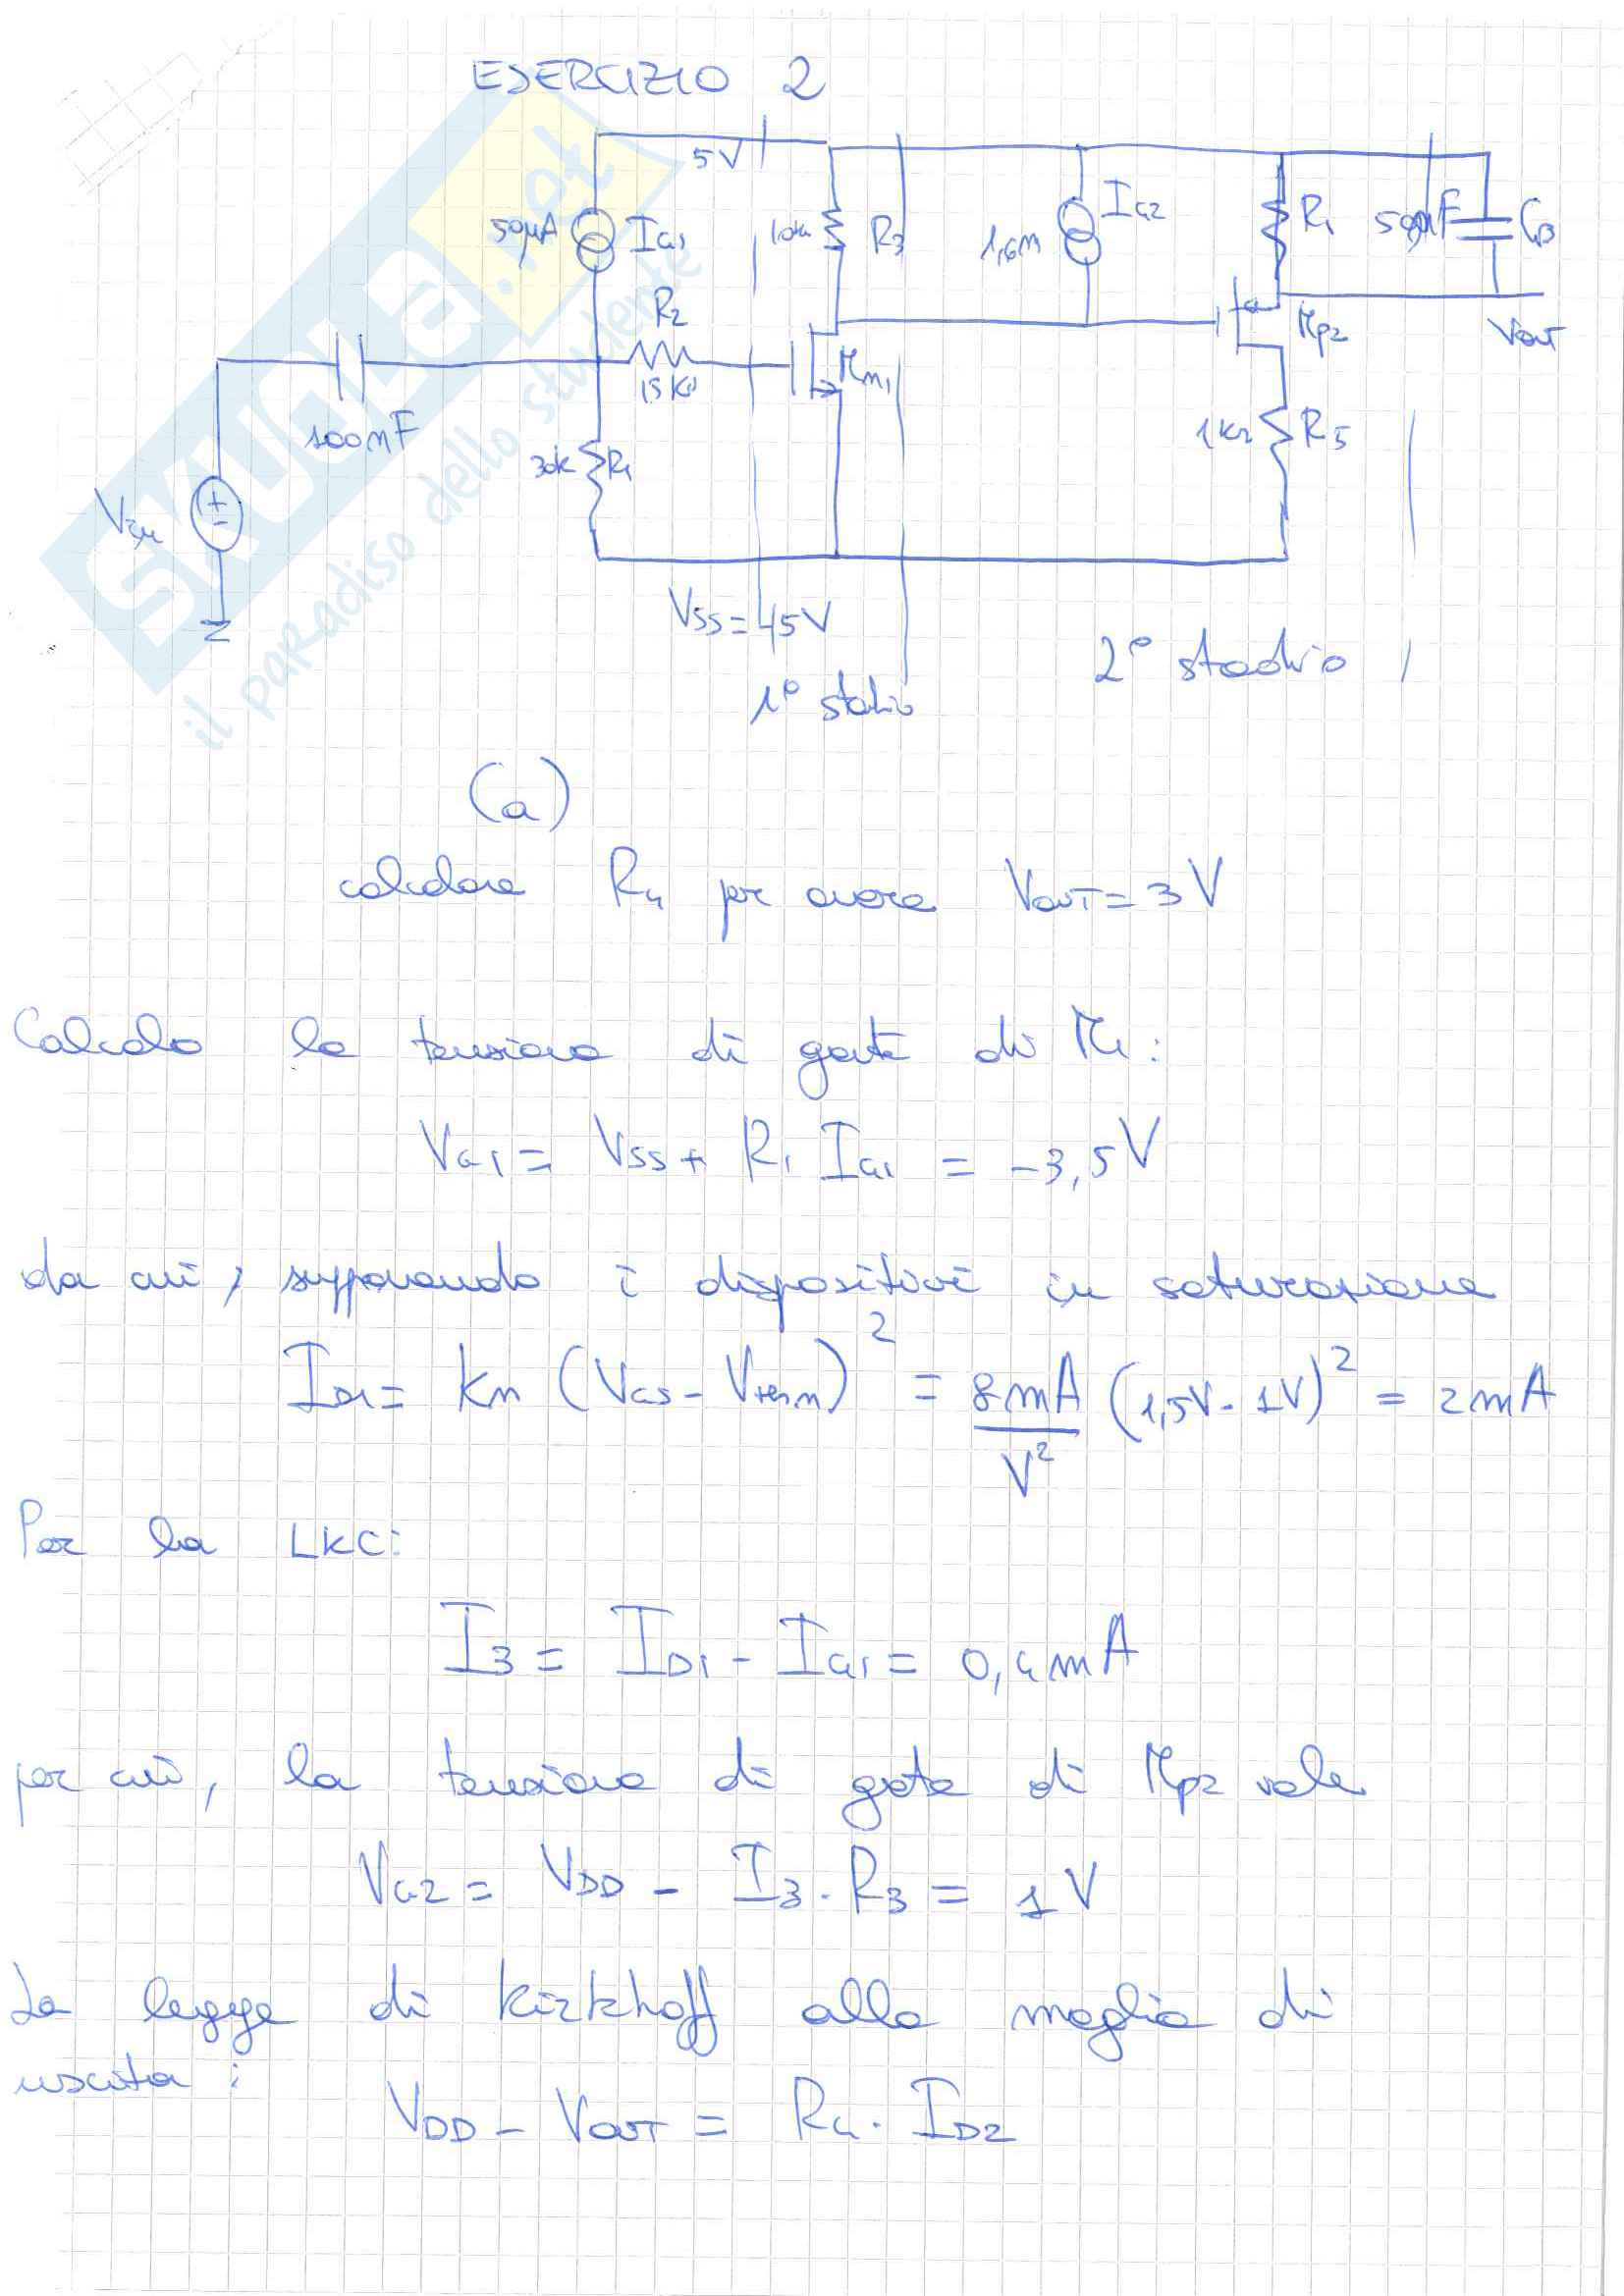 ESERCIZIO 2
5V
50µA
IG1
10k
R3
1,6m
IG2
R4
50nF
CB
R2
15kΩ
Mn1
Mp2
VOUT
100nF
30k
R1
1kΩ
R5
+
-
VSS=-5V
1° stadio
2° stadio
(a)
calcolare R4 per avere VOUT=3V
Calcolo la tensione di gate di M1:
VG1= VSS+ R1 IG1 = -3,5V
da cui, supponendo i dispositivi in saturazione
ID1= kn (VGS-VTHn)² = 8mA/V² (1,5V-1V)² = 2mA
Per la LKC:
I3= ID1-IG1= 0,4mA
per cui, la tensione di gate di Mp2 vale
VG2= VDD - I3·R3= 1V
La legge di Kirkhoff alla maglia di
uscita:
VDD-VOUT= R4·ID2
SKUOLA.net
il paradiso dello studente